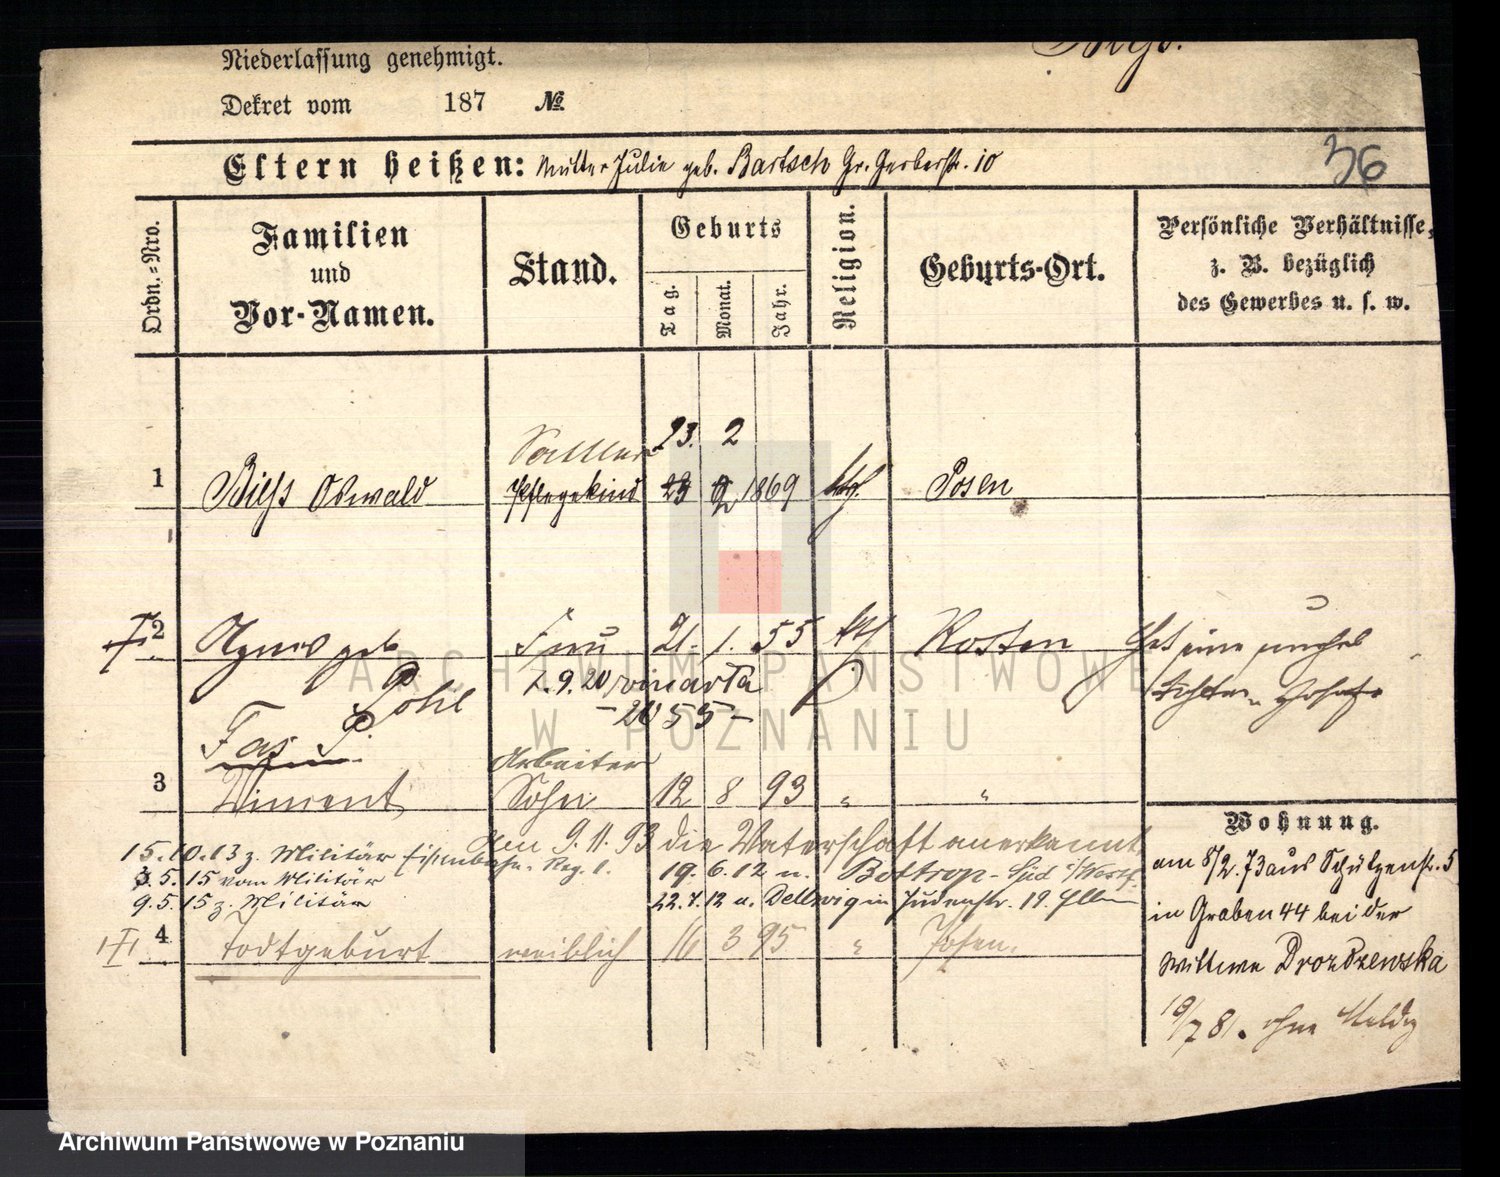 Niederlassung genehmigt.
Dekret vom 187 №
Eltern heißen: Mutter Julie geb. Bartsch Gr. Gerberstr. 10
36
Ordn.-Nro.
Familien und Vor-Namen.
Stand.
Geburts
Tag.
Monat.
Jahr.
Religion.
Geburts-Ort.
Persönliche Verhältnisse,
z. B. bezüglich
des Gewerbes u. s. w.
Sattler 23. 2
1 Oswald Pflegekind 1869 Posen
2 Agnes geb. Frau 21. 1. 55 kth Kosten Hat eine
Pohl 7. 9. 20
Arbeiter
3 Vincent Sohn 12 8 93 " "
Den 9. 11. 93 die Vaterschaft anerkannt
15. 10. 13 z. Militär Eisenbahn-Reg. 1. 19. 6. 12 n. Bottrop-Süd i/Westf.
3. 5. 15 vom Militär
9. 5. 15 z. Militär 22. 7. 12 a. Dellwig in Judenstr. 19.
4 Todtgeburt weiblich 16 3 95 " Posen.
Wohnung.
am 8/2. 73 aus Schützenstr. 5
in Graben 44 bei der
Wittwe Drozdzewska
10/7 81. ohne Meldg
ARCHIWUM PAŃSTWOWE
W POZNANIU
Archiwum Państwowe w Poznaniu